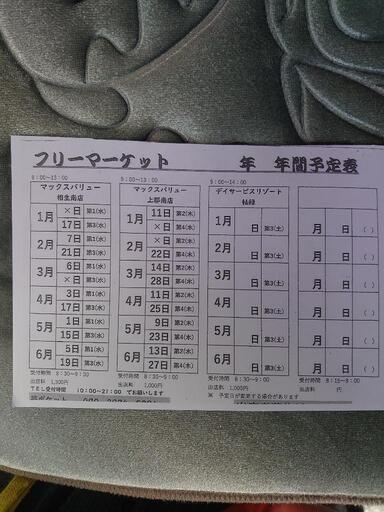 フリーマーケット 年 年間予定表
9:00~15:00
マックスバリュー
相生南店
1月 ×日 第1(水)
17日 第3(水)
2月 7日 第1(水)
21日 第3(水)
3月 6日 第1(水)
×日 第3(水)
4月 3日 第1(水)
17日 第3(水)
5月 1日 第1(水)
15日 第3(水)
6月 5日 第1(水)
19日 第3(水)
受付時間 8:30~9:30
出店料 1,300円
TEL受付時間 10:00~21:00 でお願いします
9:00~13:00
マックスバリュー
上郡南店
1月 11日 第2(木)
×日 第4(木)
2月 ×日 第2(木)
22日 第4(木)
3月 14日 第2(木)
28日 第4(木)
4月 11日 第2(木)
25日 第4(木)
5月 9日 第2(木)
23日 第4(木)
6月 13日 第2(木)
27日 第4(木)
受付時間 8:30~9:00
出店料 1,000円
9:00~14:00
デイサービスリゾート
1月 日 第3(土)
2月 日 第3(土)
3月 日 第3(土)
4月 日 第3(土)
5月 日 第3(土)
6月 日 第3(土)
受付時間 8:30~9:00
出店料 1,000円
※ 予定日が変更する場合があります
月 日 ( )
月 日 ( )
月 日 ( )
月 日 ( )
月 日 ( )
月 日 ( )
受付時間 8:15~9:00
出店料 円